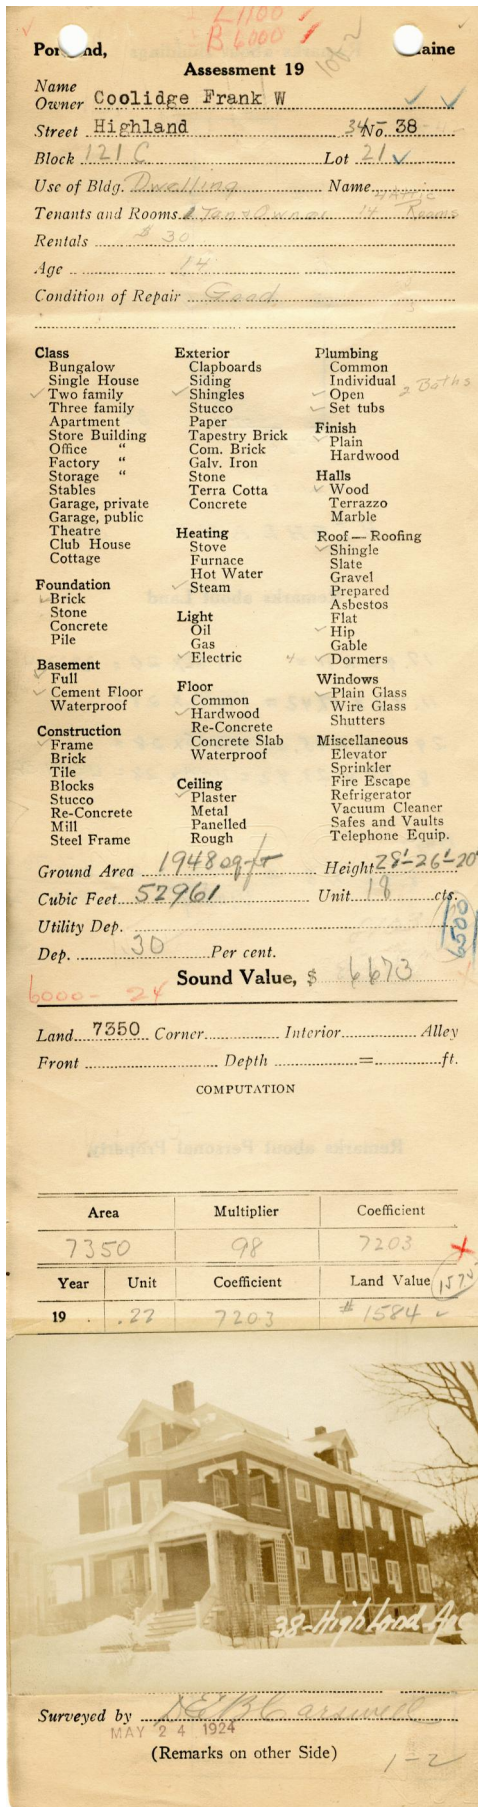 L 1100 1
B 6000 1
1 of 2
Portland, Maine
Assessment 19
Name
Owner Coolidge Frank W
Street Highland 34- No. 38
Block 121 C Lot 21
Use of Bldg. Dwelling Name
Tenants and Rooms. 1 Ten & Owner 14 Rooms
4 Attic
Rentals $ 30
Age 14
Condition of Repair Good
Class
Bungalow
Single House
Two family
Three family
Apartment
Store Building
Office "
Factory "
Storage "
Stables
Garage, private
Garage, public
Theatre
Club House
Cottage
Foundation
Brick
Stone
Concrete
Pile
Basement
Full
Cement Floor
Waterproof
Construction
Frame
Brick
Tile
Blocks
Stucco
Re-Concrete
Mill
Steel Frame
Exterior
Clapboards
Siding
Shingles
Stucco
Paper
Tapestry Brick
Com. Brick
Galv. Iron
Stone
Terra Cotta
Concrete
Heating
Stove
Furnace
Hot Water
Steam
Light
Oil
Gas
Electric
Floor
Common
Hardwood
Re-Concrete
Concrete Slab
Waterproof
Ceiling
Plaster
Metal
Panelled
Rough
Plumbing
Common
Individual
Open 2 Baths
Set tubs
Finish
Plain
Hardwood
Halls
Wood
Terrazzo
Marble
Roof — Roofing
Shingle
Slate
Gravel
Prepared
Asbestos
Flat
Hip
Gable
4 Dormers
Windows
Plain Glass
Wire Glass
Shutters
Miscellaneous
Elevator
Sprinkler
Fire Escape
Refrigerator
Vacuum Cleaner
Safes and Vaults
Telephone Equip.
Ground Area 1948 sq ft Height 28'-26'-20'
Cubic Feet 52961 Unit 18 cts.
Utility Dep.
6500
Dep. 30 Per cent.
Sound Value, $ 6673
6000- 24
Land 7350 Corner Interior Alley
Front Depth = ft.
COMPUTATION
Area Multiplier Coefficient
7350 98 7203
Year Unit Coefficient Land Value 1575
19 .22 7203 $ 1584
38-Highland Ave
Surveyed by
MAY 24 1924
(Remarks on other Side)
1-2